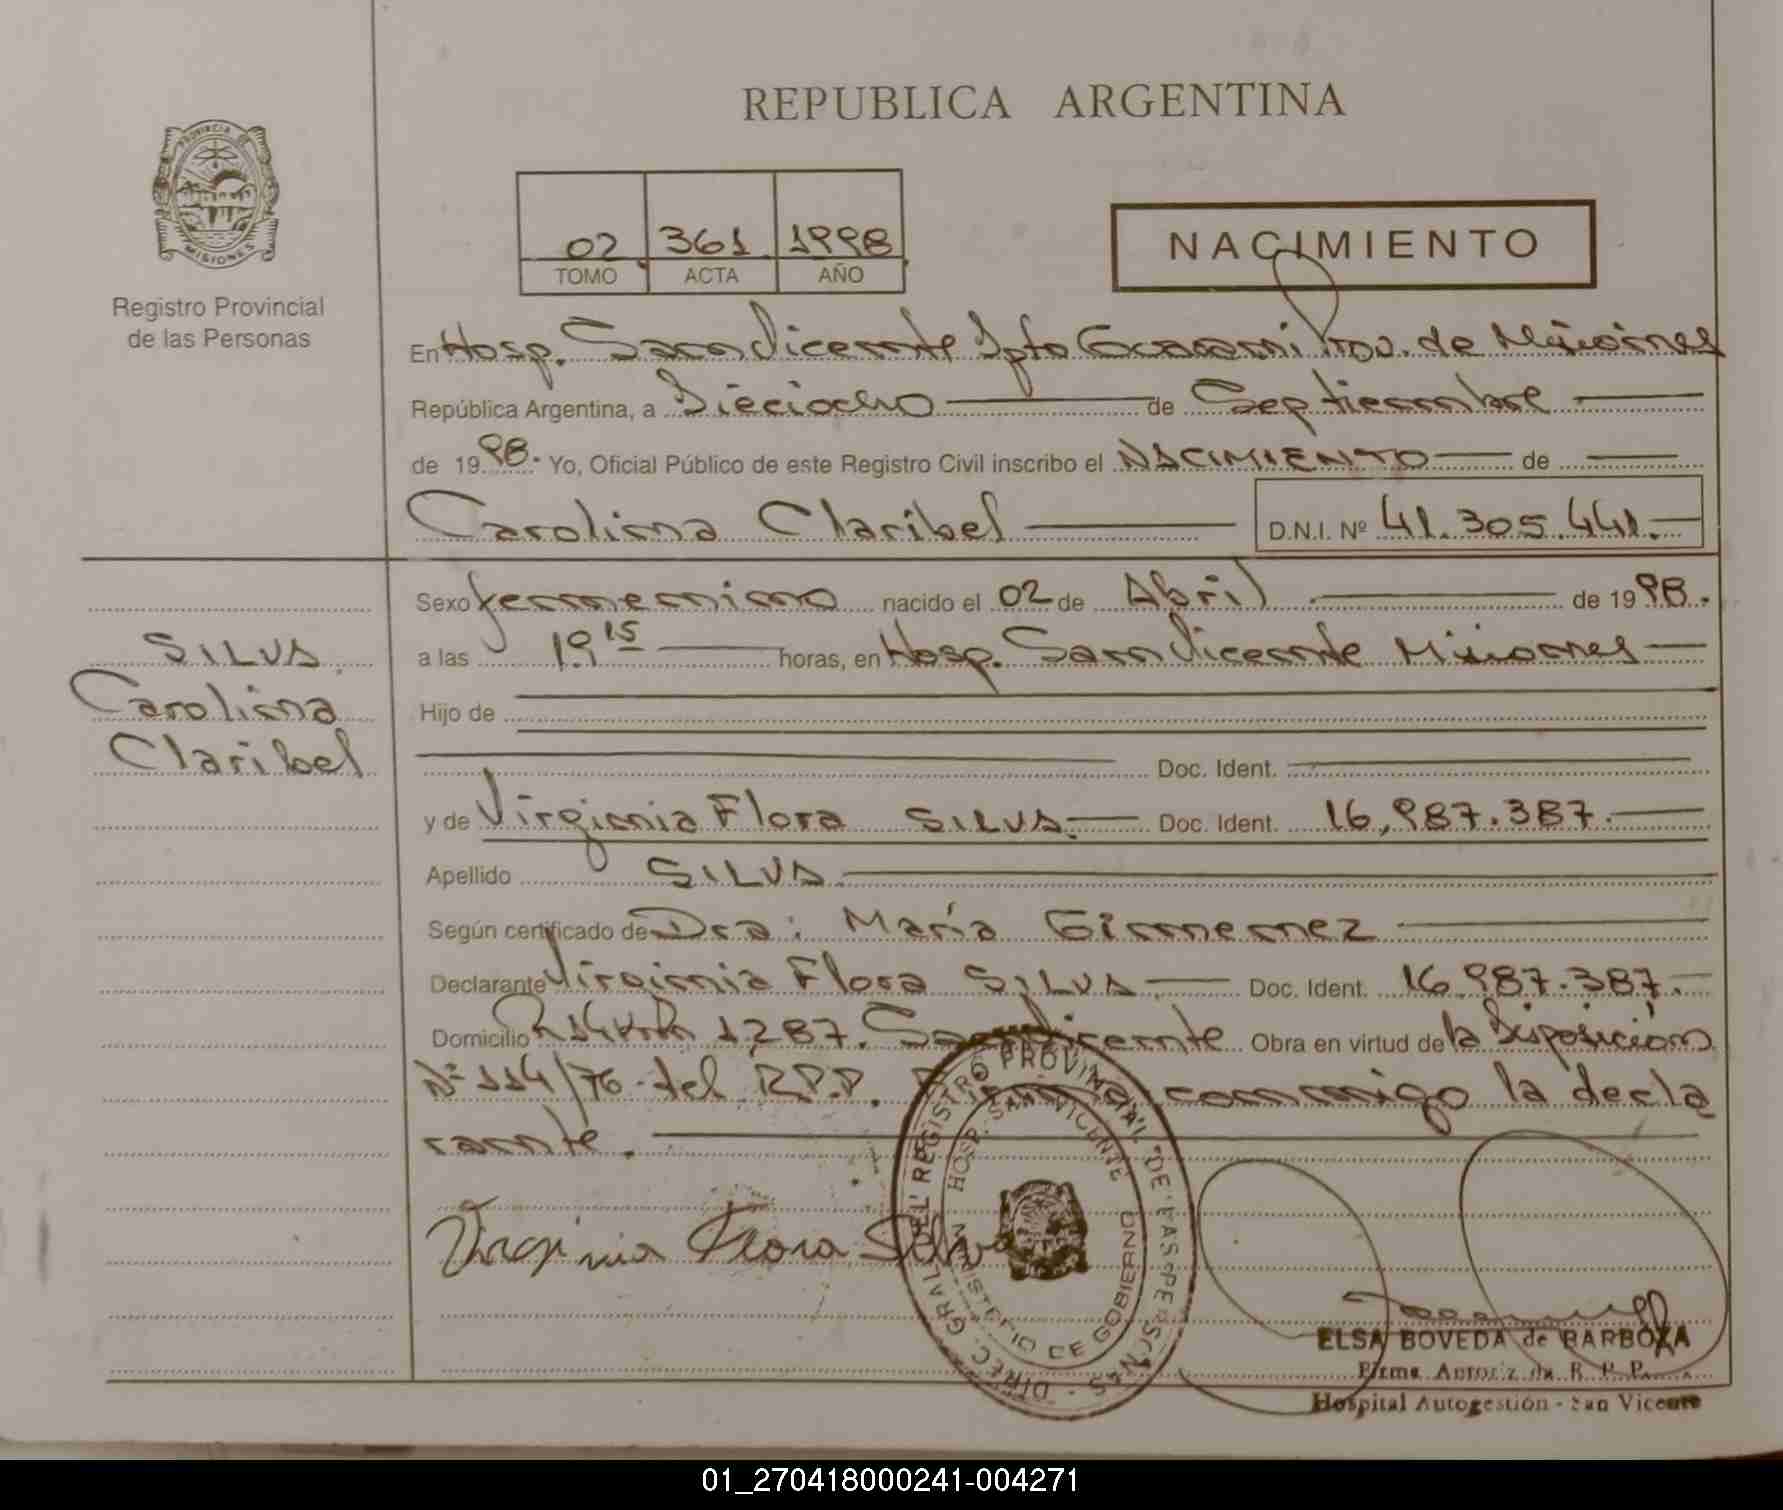 REPUBLICA ARGENTINA
PROVINCIA DE
MISIONES
Registro Provincial
de las Personas
02 361 1998
TOMO ACTA AÑO
NACIMIENTO
En Hosp. San Vicente Dpto Guarani Prov. de Misiones
República Argentina, a Dieciocho de Septiembre
de 1998. Yo, Oficial Público de este Registro Civil inscribo el NACIMIENTO de
Carolina Claribel D.N.I. Nº 41.305.441.
SILVA
Carolina
Claribel
Sexo femenino nacido el 02 de Abril de 1998.
a las 19 15 horas, en Hosp. San Vicente Misiones
Hijo de
Doc. Ident.
y de Virginia Flora SILVA Doc. Ident. 16,987.387.
Apellido SILVA
Según certificado de Dra: María Gimenez
Declarante Virginia Flora SILVA Doc. Ident. 16.987.387.
Domicilio R14 Km 1287. San Vicente Obra en virtud de la Disposición
Nº 114/76 del R.P.P. Firma conmigo la decla
rante.
Virginia Flora Silva
DIREC. GRAL DEL REGISTRO PROVINCIAL DE LAS PERSONAS
HOSP. SAN VICENTE
MINISTERIO DE GOBIERNO
ELSA BOVEDA de BARBOZA
Firma Autoriz. da R. P. P.
Hospital Autogestión - San Vicente
01_270418000241-004271